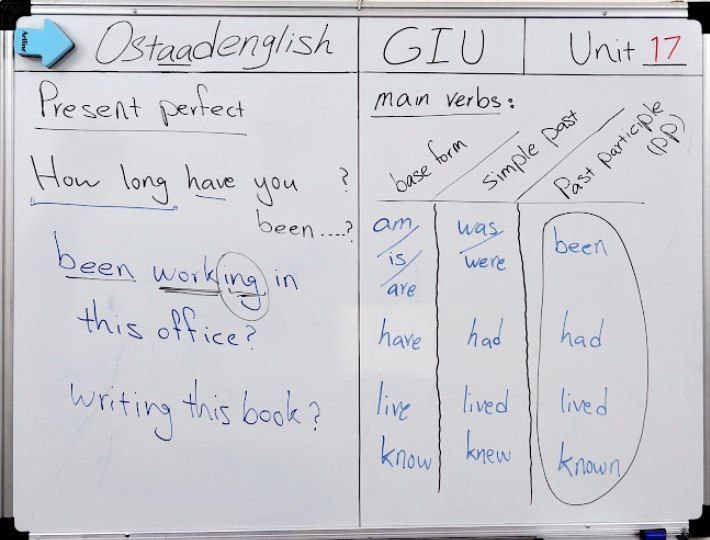 Ostaadenglish
GIU
Unit 17
Present perfect
How long have you ?
been ....?
been working in
this office?
writing this book?
main verbs:
base form
simple past
Past participle
(pp)
am/ was/ been
is/ were
are
have had had
live lived lived
know knew known